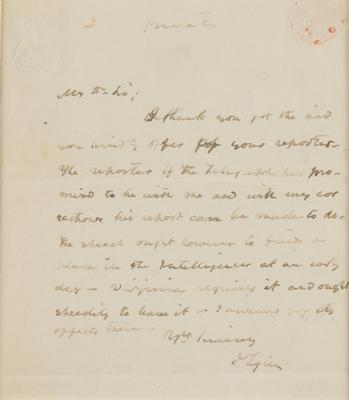 Private
My Dr Sir;
I thank you for the aid
you kindly offer for your reporter.
The reporter of the Telegraph has pro-
mised to be with me and with my cor
rections his report can be made to do.
The speech ought however to find a
place in the Intelligencer at an early
day - Virginia requires it and ought
speedily to have it - I answer for its
effects there -
Yrs Sincerely
J Tyler